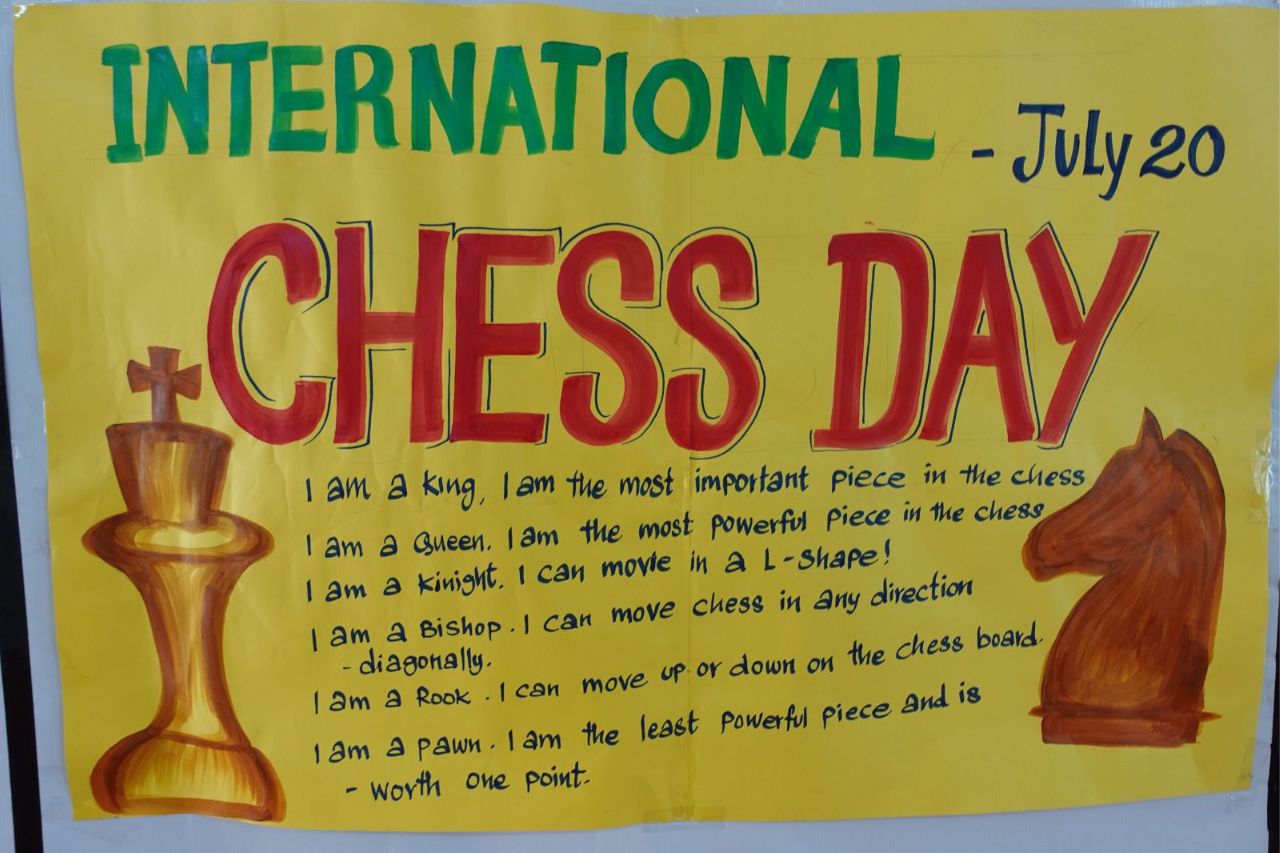 INTERNATIONAL
- July 20
CHESS DAY
I am a king, I am the most important piece in the chess
I am a Queen. I am the most powerful piece in the chess
I am a kinight. I can movie in a L-shape!
I am a Bishop. I can move chess in any direction
- diagonally.
I am a Rook. I can move up or down on the chess board.
I am a pawn. I am the least powerful piece and is
- worth one point.